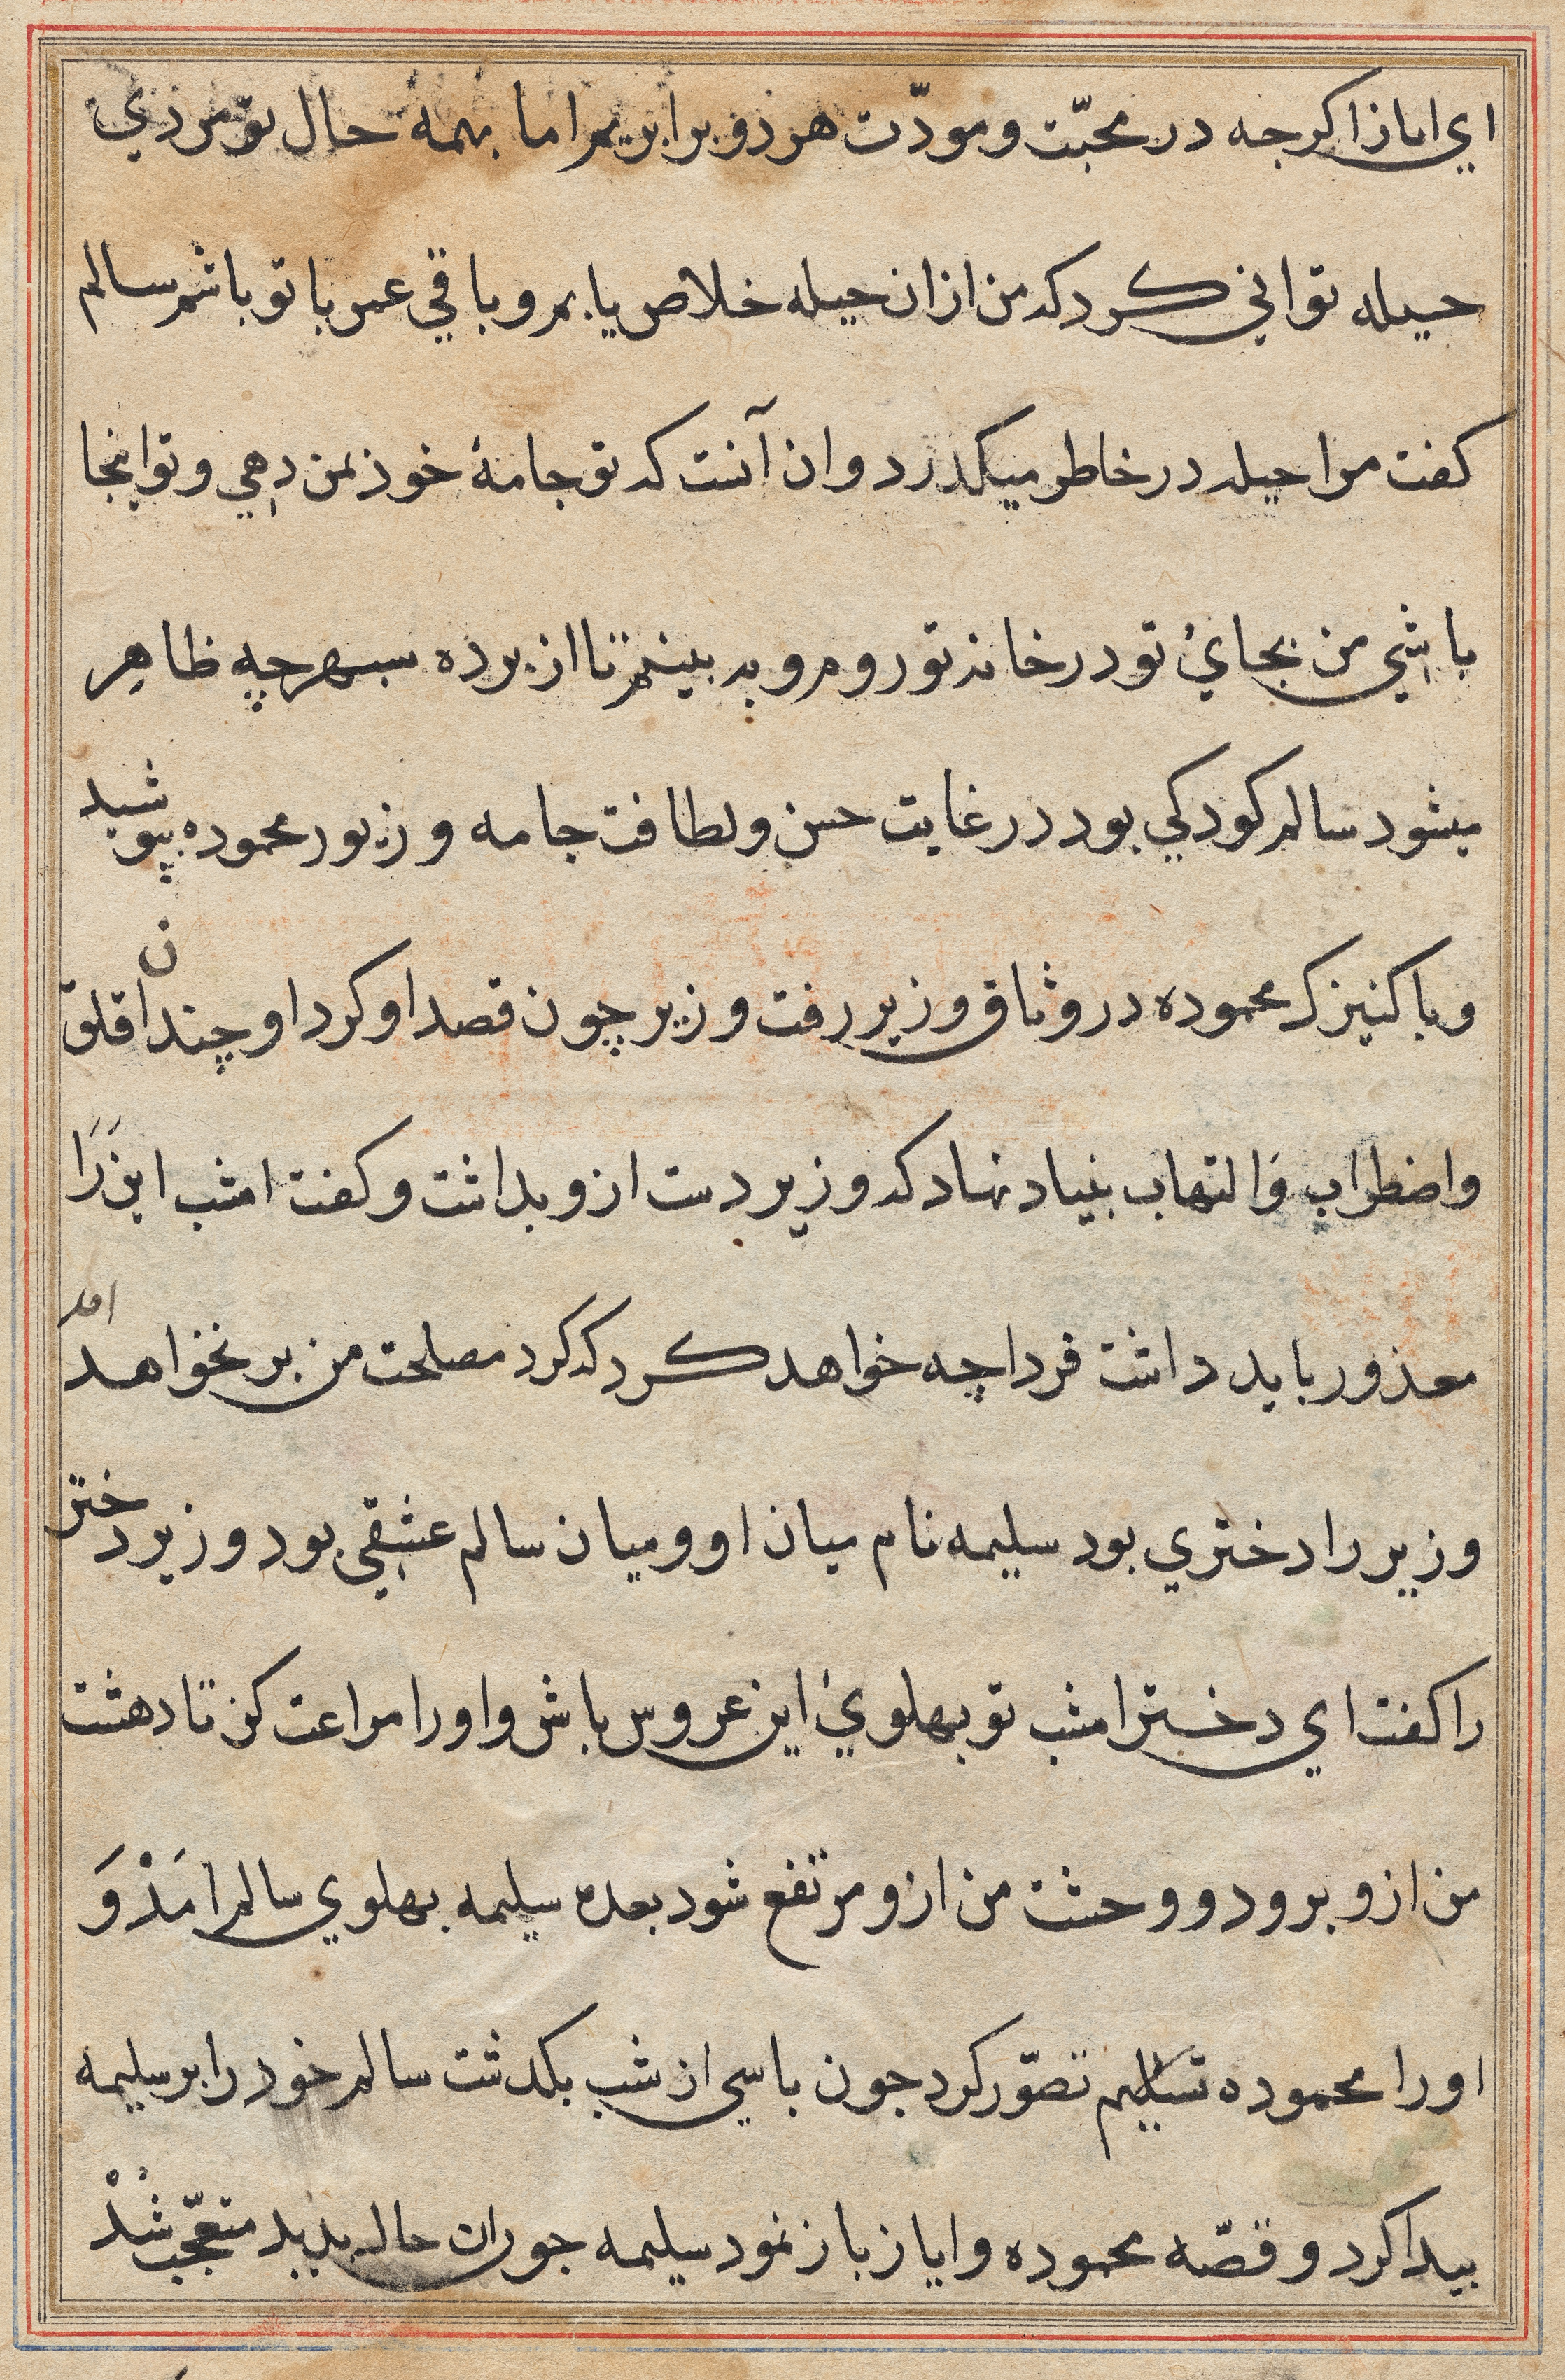 اي اىازا كرجه در محبّت و مودّت هر ذو برابريم اما بهمه حال تو مرذي
حيله تواني كرد كه من ازان حيله خلاص يابم و باقي عمر با تو باشم سالم
كفت مرا حيله در خاطر ميكذرد و ان آنست كه تو جامهٔ خوذ بمن دهي و تو اينجا
باشي من بجائ تو در خانه تو روم و به بينم تا از برده سبهر چه ظاهر
ميشود سالم كودكي بود در غايت حسن و لطافت جامه و زيور محموده بپوشيد
و با كنيزك محموده در وثاق وزير رفت وزير چون قصد او كرد او چندان قلق
و اضطراب وَ التهاب بنياد نهاد كه وزير دست ازو بداشت و كفت امشب اين رَا
معذور بايد داشت فردا چه خواهد كرد كه كرد مصلحت من بر نخواهد امد
وزير را دختري بود سليمه نام ميان او و ميان سالم عشقي بود وزير دختر
را كفت اي دختر امشب تو بپهلوئ اين عروس باش و او را مراعت كن تا دهشت
من ازو برود و وحشت من ازو مرتفع شود بعده سليمه بپهلوي سالم امَذْ وَ
او را محموده تصوّر كرد جون باسي از شب بكذشت سالم خود را بر سليمه
بيدا كرد و قصّه محموده و اياز باز نمود سليمه جوران حاله بديد متعجّب شُدْ